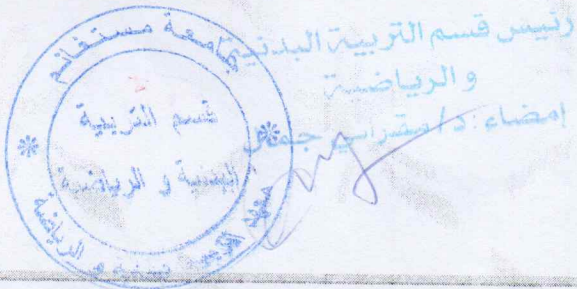 رئيس قسم التربية البدنية
والرياضية
إمضاء: د/مقراني جمال
جامعة مستغانم
قسم التربية
البدنية و الرياضية
التربية البدنية و الرياضية